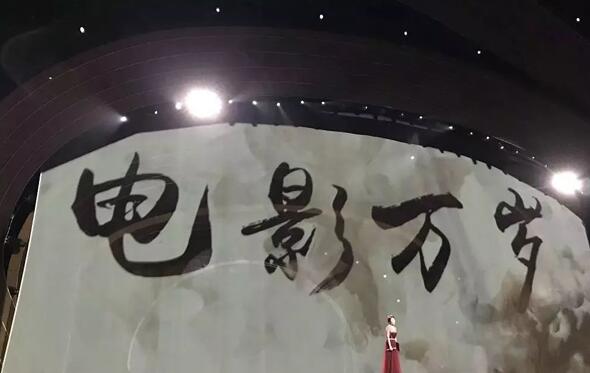 电影万岁